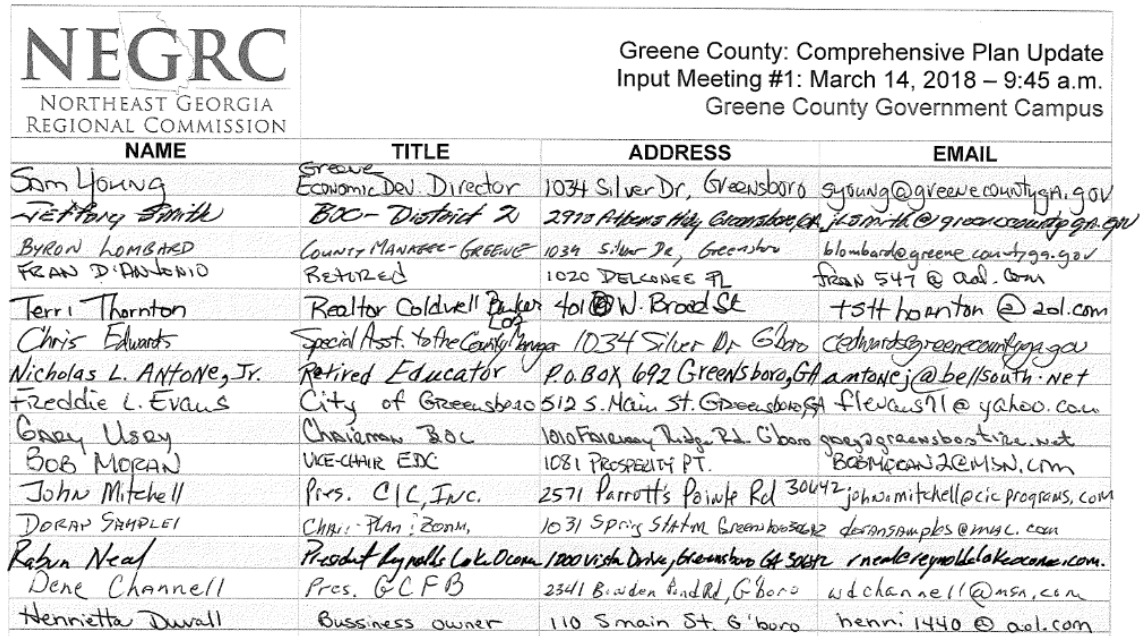 NEGRC
NORTHEAST GEORGIA
REGIONAL COMMISSION
Greene County: Comprehensive Plan Update
Input Meeting #1: March 14, 2018 – 9:45 a.m.
Greene County Government Campus
NAME TITLE ADDRESS EMAIL
Sam Young Greene Economic Dev. Director 1034 Silver Dr, Greensboro syoung@greenecountyga.gov
Jeffery Smith BOC - District 2 Athens Hwy Greensboro, GA jlsmith@greenecountyga.gov
BYRON LOMBARD COUNTY MANAGER - GREENE 1034 Silver Dr, Greensboro blombard@greenecountyga.gov
FRAN D'ANTONIO RETIRED 1020 DELCONEE PL fran547@aol.com
Terri Thornton Realtor Coldwell Banker 401 W. Broad St tstthornton@aol.com
Chris Edwards Special Asst. to the County Manager 1034 Silver Dr G'boro cedwards@greenecountyga.gov
Nicholas L. Antone, Jr. Retired Educator P.O. Box 692 Greensboro, GA antonej@bellsouth.net
Freddie L. Evans City of Greensboro 512 S. Main St. Greensboro, GA flevans71@yahoo.com
GARY USRY Chairman BOC 1010 Fairway Ridge Rd. G'boro
BOB MORAN VICE-CHAIR EDC 1081 PROSPERITY PT. BOBMORAN2@MSN.COM
John Mitchell Pres. CIC, Inc. 2571 Parrott's Pointe Rd 30642 john.mitchell@cicprograms.com
DORAN 1031 Spring Station Greensboro 30642 doransamples@mac.com
Rabun Neal President Reynolds Lake Oconee 1200 Vista Drive, Greensboro GA 30642 rneal@reynoldslakeoconee.com.
Dene Channell Pres. GCFB 2341 Pond Rd, G'boro wdchannell@msn.com
Henrietta Duvall Bussiness owner 110 S main St. G'boro henri1440@aol.com